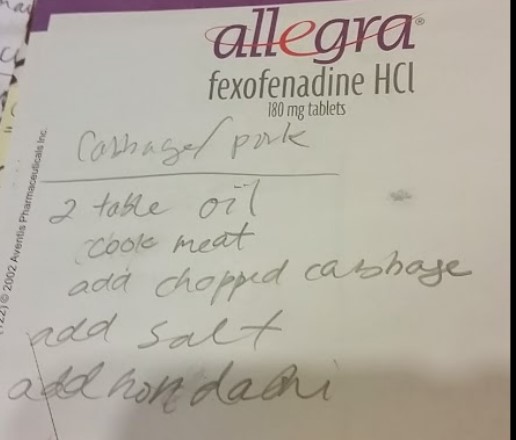 allegra®
fexofenadine HCl
180 mg tablets
Cabbage/ pork
2 table oil
cook meat
add chopped cabbage
add salt
add hondashi
© 2002 Aventis Pharmaceuticals Inc.